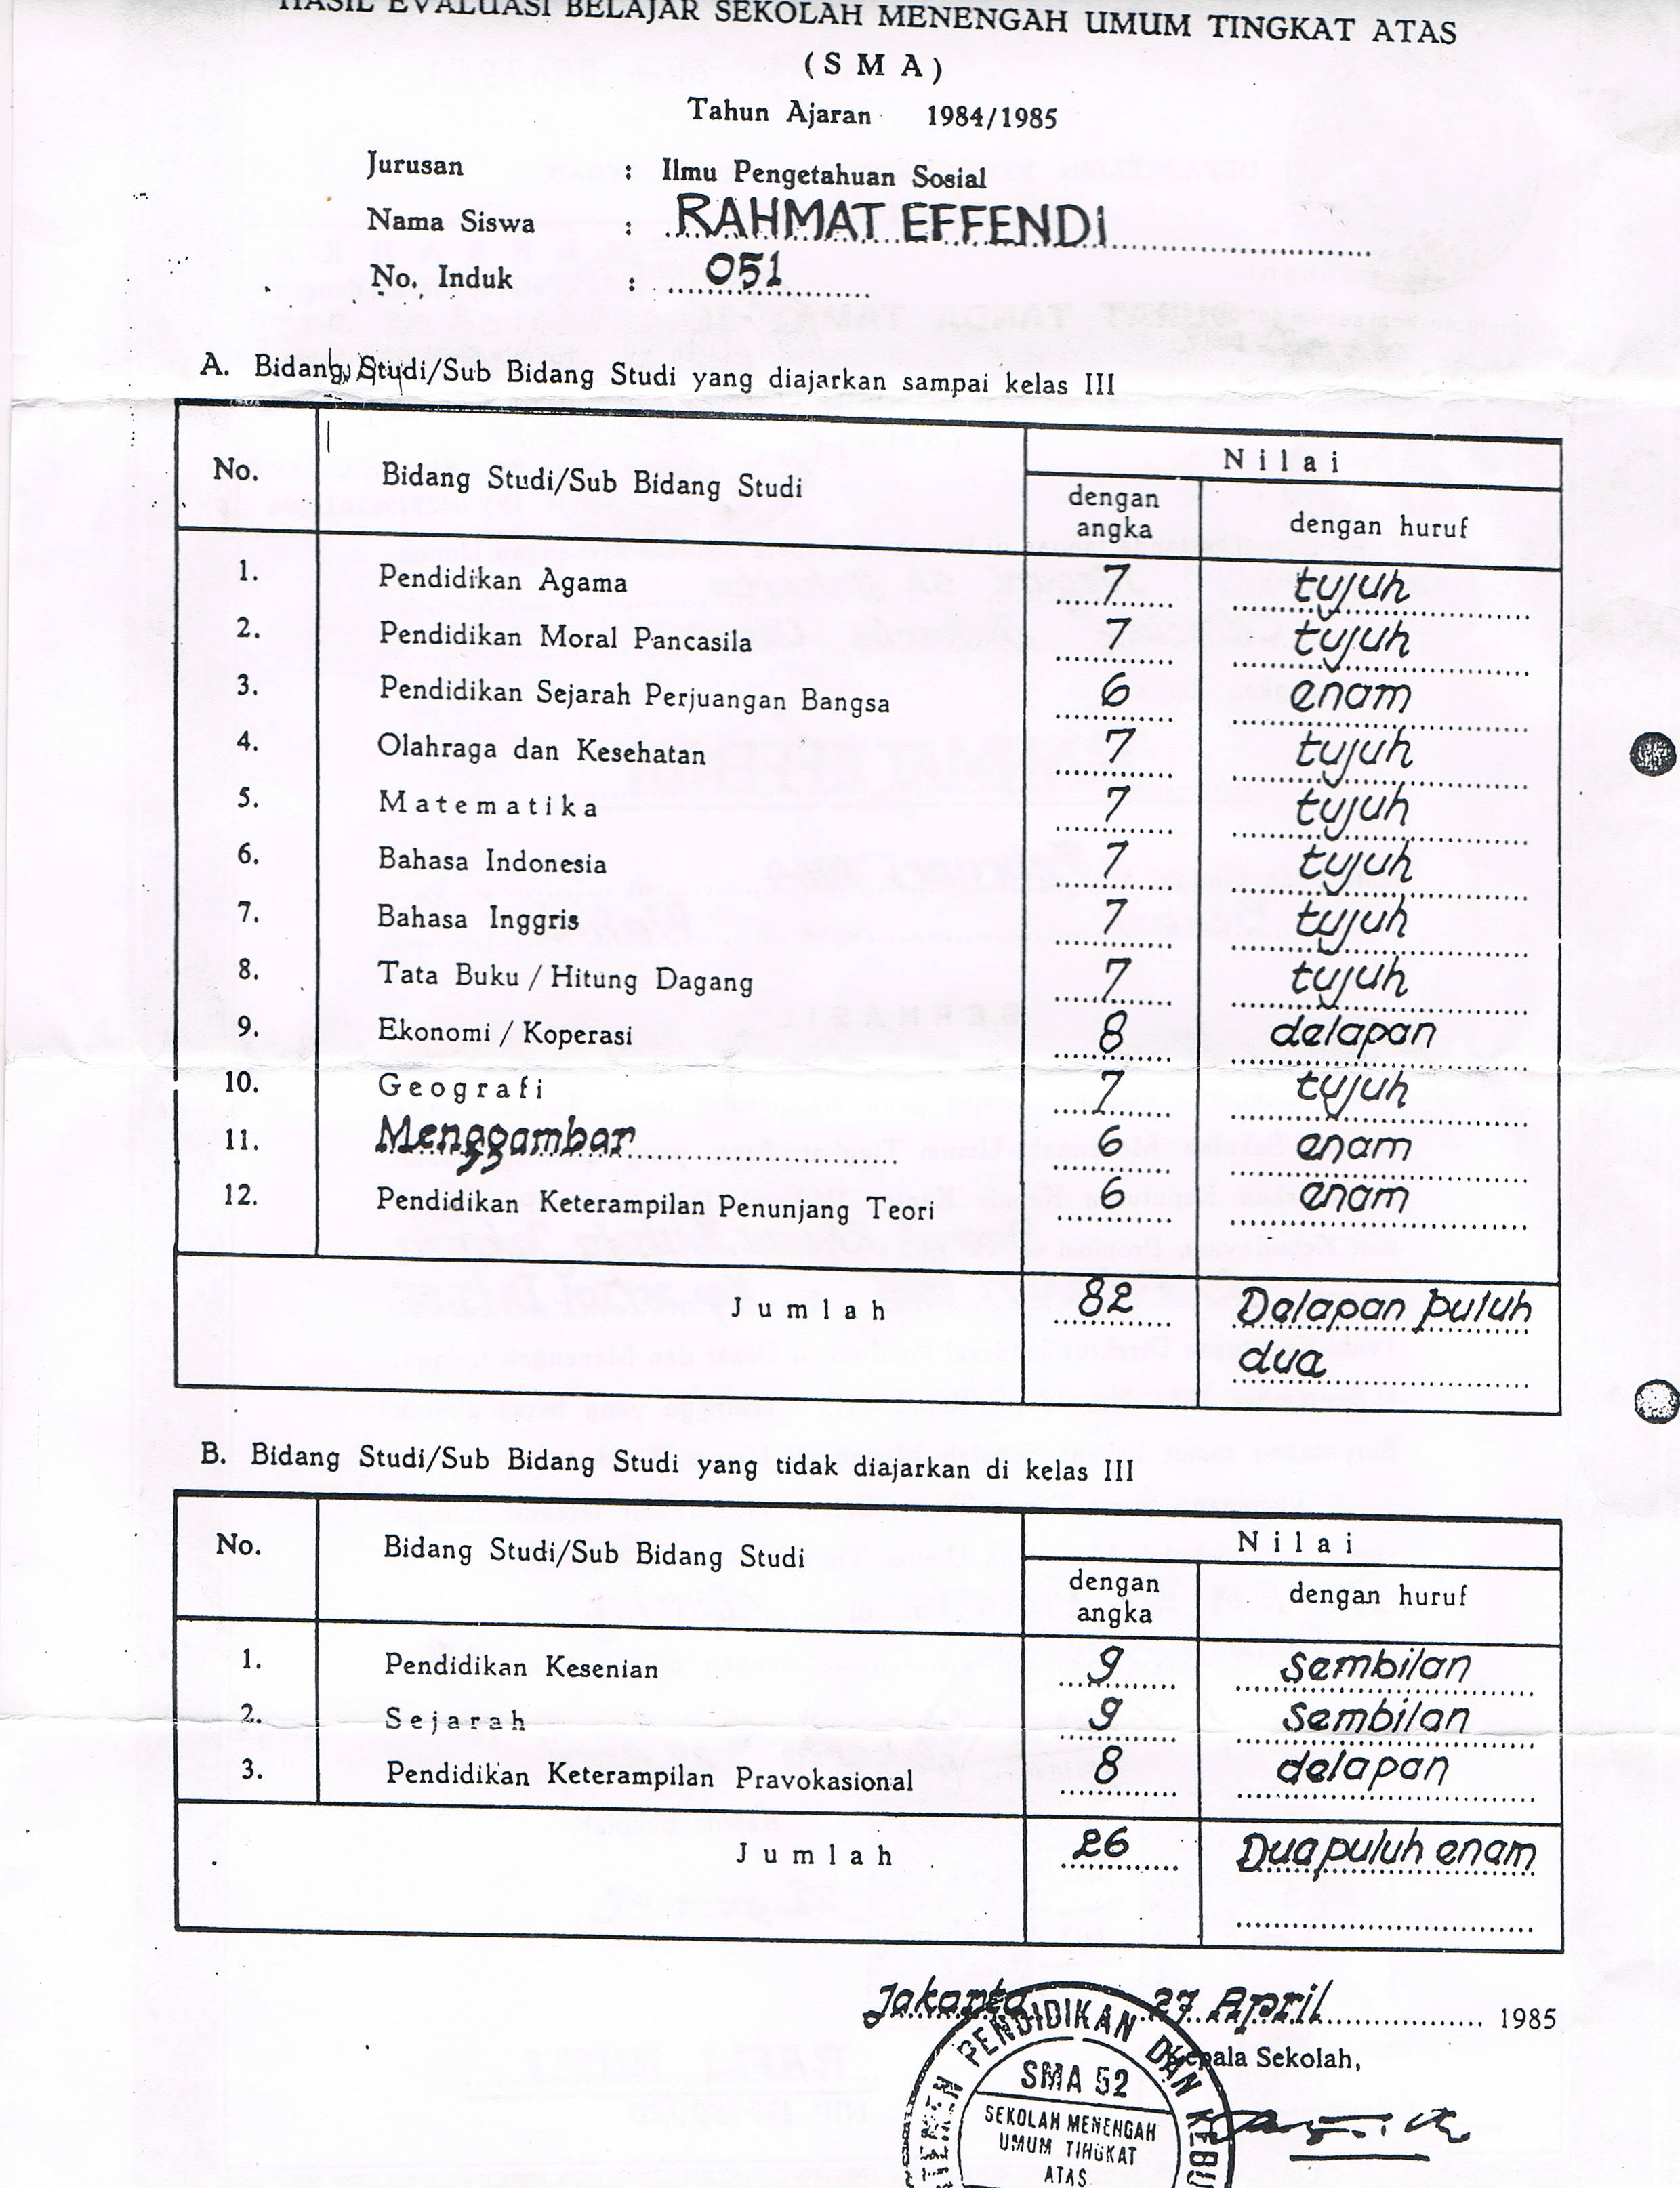 HASIL EVALUASI BELAJAR SEKOLAH MENENGAH UMUM TINGKAT ATAS
( S M A )
Tahun Ajaran 1984/1985
Jurusan : Ilmu Pengetahuan Sosial
Nama Siswa : RAHMAT EFFENDI
No. Induk : 051
A. Bidang Studi/Sub Bidang Studi yang diajarkan sampai kelas III
No. Bidang Studi/Sub Bidang Studi Nilai
dengan angka dengan huruf
1. Pendidikan Agama 7 tujuh
2. Pendidikan Moral Pancasila 7 tujuh
3. Pendidikan Sejarah Perjuangan Bangsa 6 enam
4. Olahraga dan Kesehatan 7 tujuh
5. Matematika 7 tujuh
6. Bahasa Indonesia 7 tujuh
7. Bahasa Inggris 7 tujuh
8. Tata Buku / Hitung Dagang 7 tujuh
9. Ekonomi / Koperasi 8 delapan
10. Geografi 7 tujuh
11. Menggambar 6 enam
12. Pendidikan Keterampilan Penunjang Teori 6 enam
Jumlah 82 Delapan puluh
dua
B. Bidang Studi/Sub Bidang Studi yang tidak diajarkan di kelas III
No. Bidang Studi/Sub Bidang Studi Nilai
dengan angka dengan huruf
1. Pendidikan Kesenian 9 Sembilan
2. Sejarah 9 Sembilan
3. Pendidikan Keterampilan Pravokasional 8 delapan
Jumlah 26 Dua puluh enam
Jakarta 27 April 1985
Kepala Sekolah,
PENDIDIKAN DAN
SMA 52
SEKOLAH MENENGAH
UMUM TINGKAT
ATAS